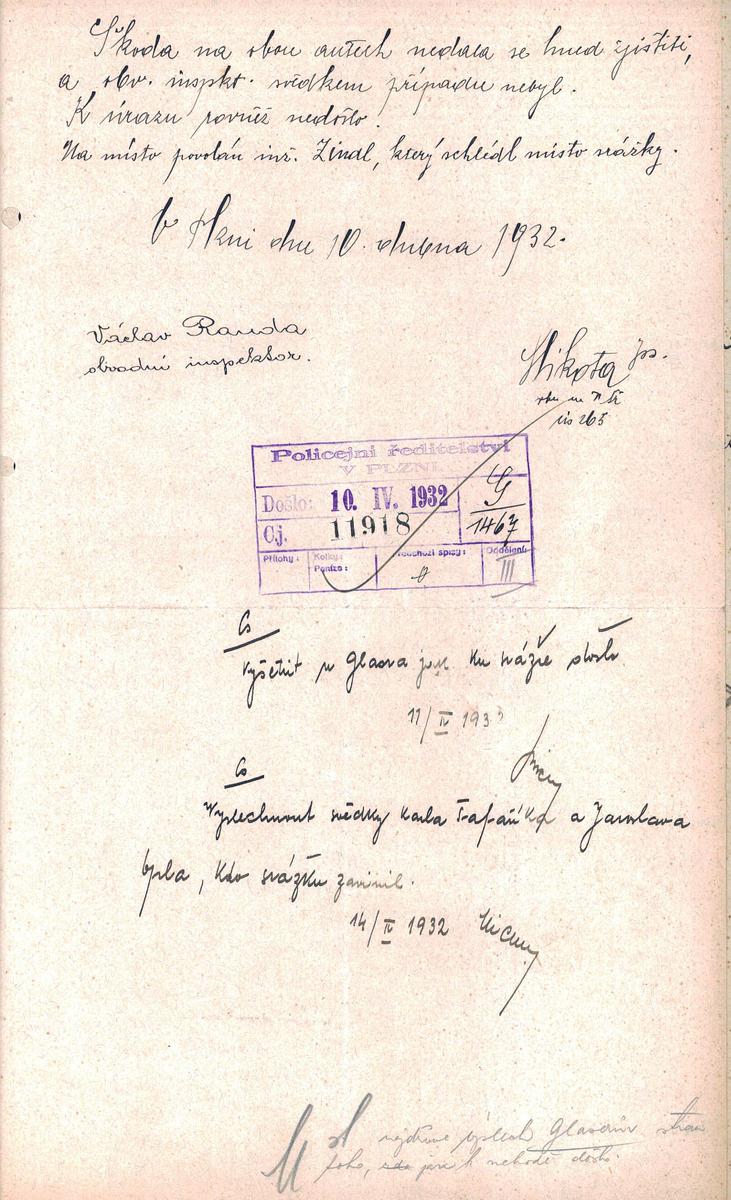 Škoda na obou autech nedala se hned zjistiti,
a obv. inspkt. svědkem případu nebyl.
K úrazu rovněž nedošlo.
Na místo povolán inž. Zindl, který shlédl místo srážky.
V Plzni dne 10. dubna 1932.
Václav Randa
obvodní inspektor.
Mikota
čís 263
Policejní ředitelství
V PLZNI
Došlo: 10. IV. 1932
G
1467
Čj. 11918
Přílohy:
Kolky:
Peníze:
spisy:
Oddělení:
III
Vyšetřit u Glasra jak ku srážce došlo
11/IV 1932
Vyslechnout svědky Karla a Jaroslava
, kdo srážku zavinil.
14/IV 1932
nejdříve výslech
toho, zda k nehodě došlo.